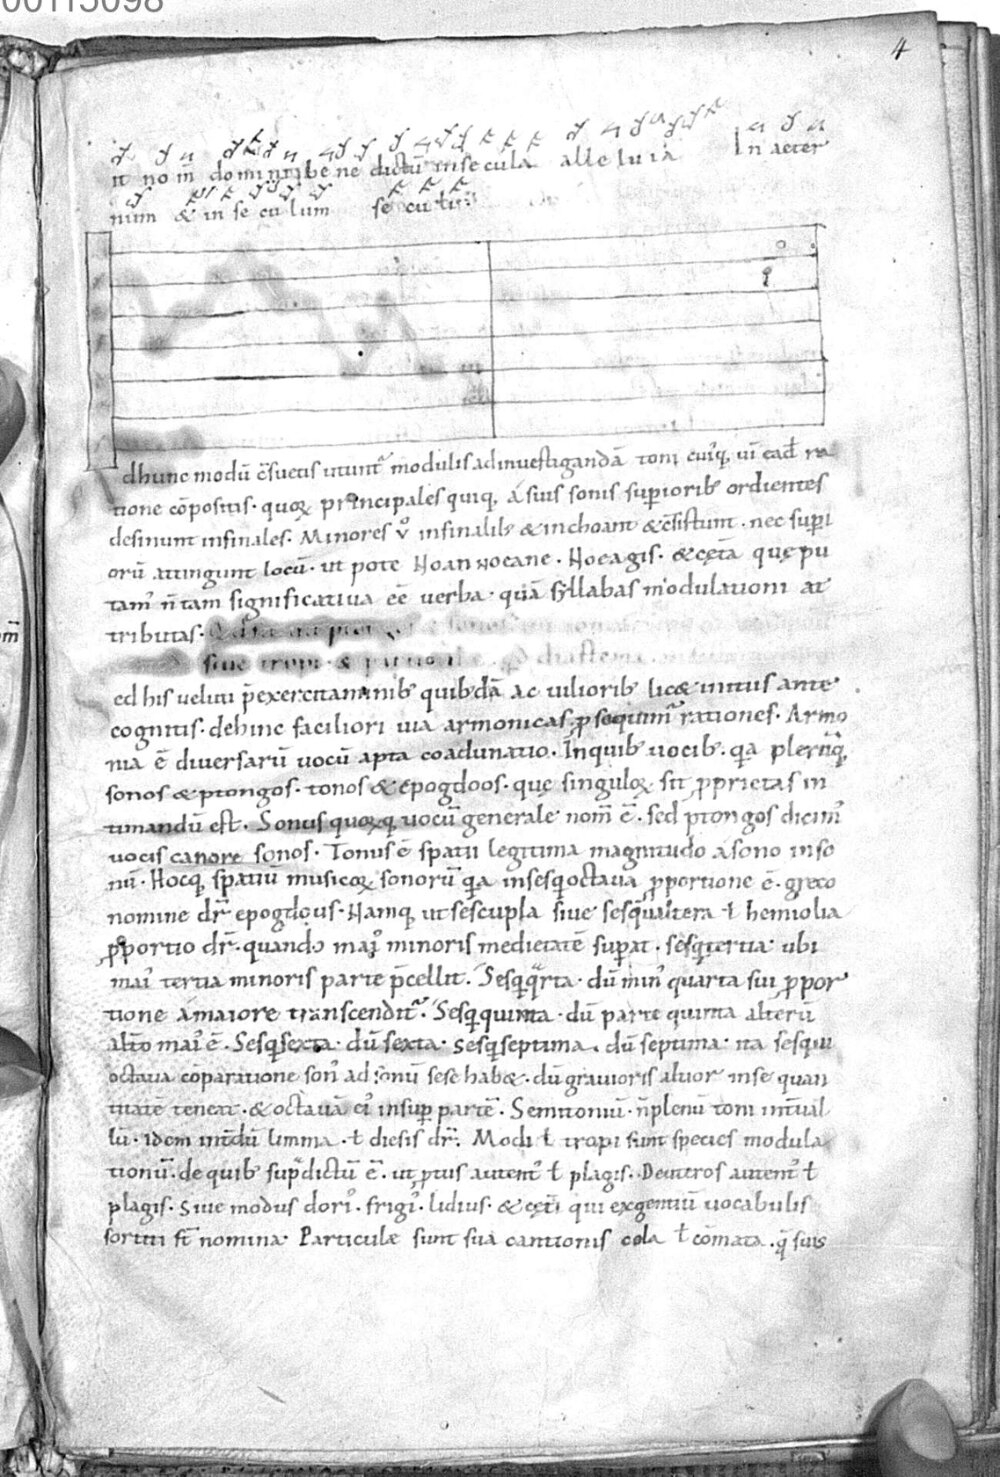 00115098
4
it nom̄ domini bene dictū in secula alleluia In aeter
num & in se cu lum se cu li
dhunc modū c̄suetis utunt᷑ modulis ad investigandā toni cuiꝗ, ui ead̄ ra
tione cōpositis · quoꝝ principales quiꝗ, a suis sonis superiorib ordientes
desinunt in finales · Minores v̊ in finalib & inchoant & c̄sistunt · nec supi
orū attingunt locū · ut pote Noannoeane · Noeagis · & cęt̄a quę pu
tam᷒ n̄ tam significativa eē verba · quā syllabas modulationi at
tributas ·
sive tropi · &
ed his veluti p̄exercitaminib quibdā ac viliorib licet intus ante
cognitis · dehinc faciliori via armonicas ꝓsequim᷒ rationes · Armo
nia ē diversarū vocū apta coadunatio · In quib vocib · q̄a plerūq̣
sonos & ptongos · tonos & epogdoos · quę singuloꝝ sit ꝓprietas in
timandū est · Sonus quoꝝq̣ vocū generale nom̄ ē · sed ptongos dicim᷒
vocis canore sonos · Tonus ē spatii legitima magnitudo a sono in so
nū · Hocq̣ spatiū musicoꝝ sonorū q̄a in sesq̄octava ꝓportione ē · greco
nomine dr̄ epogdous · Namq̣ ut sescupla sive sesq̄altera ł hemiolia
ꝓportio dr̄ · quando mai᷒ minoris medietatē supat · sesq̄tertia ubi
mai᷒ tertia minoris parte p̄cellit · Sesq̄q̄rta · dū min᷒ quarta sui ꝓpor
tione a maiore transcendit᷑ · Sesq̄quinta · dū parte quinta alterū
alt̄o mai᷒ ē · Sesq̄sexta · dū sexta · sesq̄septima · dū septima · ita sesqui
octava cōparatione son᷒ ad sonū sese habet · dū gravioris altior in se quan
titatē teneat · & octavā ei᷒ insup partē · Semitoniū · n̄ plenū toni int̄val
lū · idem int̄dū limma · ł diesis dr̄ · Modi ł tropi sunt species modula
tionū · de quib sup̄dictū ē · ut ptus autent᷒ ł plagis · Deuteros autent᷒ ł
plagis · Sive modus dori᷒ · frigi᷒ · lidius · & cęt̄i qui ex gentiū vocabulis
sortiti st̄ nomina · Particulæ sunt sua cantionis cola ł cōmata · q̄ suis